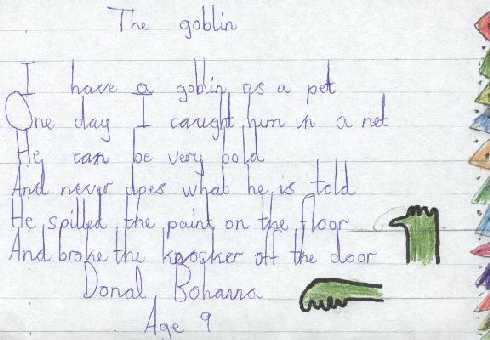 The goblin
I have a goblin as a pet
One day I caught him in a net
He can be very bold
And never does what he is told
He spilled the paint on the floor
And broke the knocker off the door
Donal Bohanna
Age 9